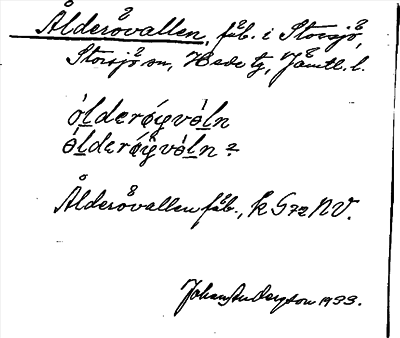 Ålderövallen, fäb. i Storsjö,
Storsjö sn, Hede tg, Jämtl. l.
ó̀lderǿyvəln
ə́lderǿÿvəln 2
Ålderövallen fäb., k G72 NV.
Johan Anderson 1933.